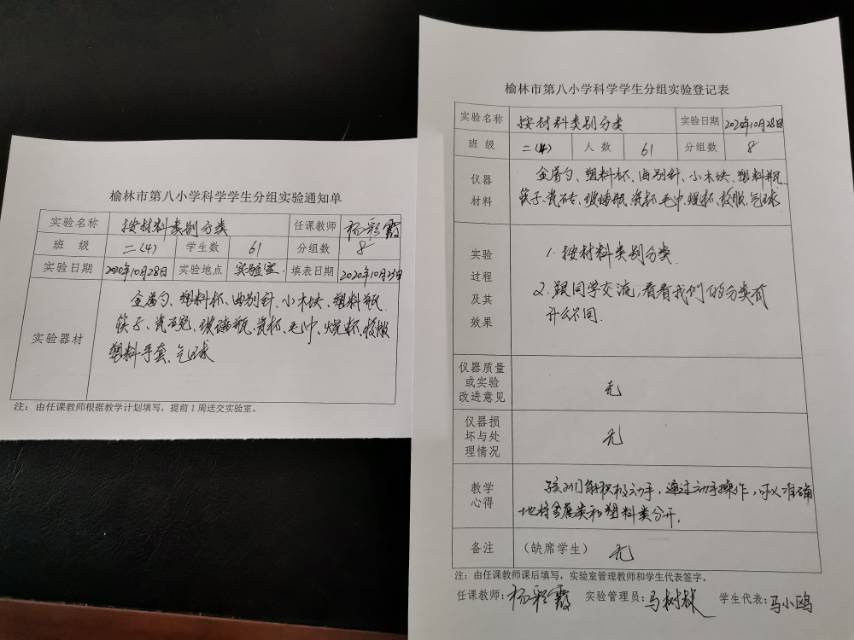 榆林市第八小学科学学生分组实验通知单
实验名称 按材料类别分类 任课教师 杨彩霞
班 级 二(4) 学生数 61 分组数 8
实验日期 2020年10月28日 实验地点 实验室 填表日期 2020年10月
实验器材
金属勺、塑料杯、曲别针、小木块、塑料瓶、
筷子、瓷碗、玻璃瓶、瓷杯、毛巾、烧杯、
塑料手套、气球
注：由任课教师根据教学计划填写，提前1周送交实验室。
榆林市第八小学科学学生分组实验登记表
实验名称 按材料类别分类 实验日期 2020年10月28日
班 级 二(4) 人 数 61 分组数 8
仪器
材料
金属勺、塑料杯、曲别针、小木块、塑料瓶、
筷子、瓷砖、玻璃瓶、瓷杯、毛巾、烧杯、气球
实验
过程
及其
效果
1. 按材料类别分类.
2. 跟同学交流,看看我们的分类有
什么不同.
仪器质量
或实验
改进意见
无
仪器损
坏与处
理情况
无
教学
心得
孩子们能积极动手，通过动手操作，可以准确
地将金属类和塑料类分开.
备注 (缺席学生) 无
注：由任课教师课后填写，实验室管理教师和学生代表签字。
任课教师：杨彩霞 实验管理员：马树林 学生代表：马小鸥